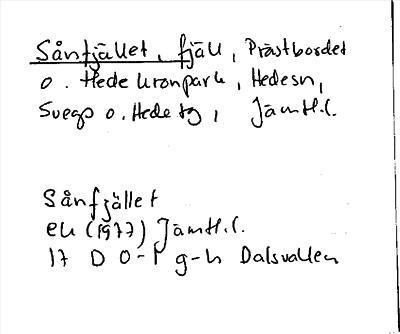 Sånfjället, fjäll, Prästbordet
o. Hede kronpark, Hedesn,
Svegs o. Hede tg, Jämtl.l.
Sånfjället
ek (1977) Jämtl.l.
17 D 0-1 g-h Dalsvallen